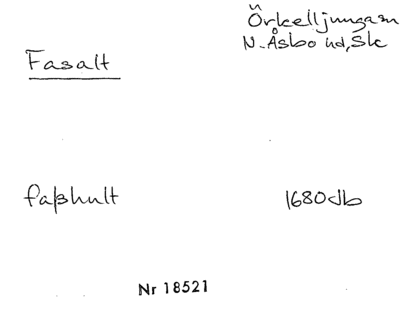 Örkelljunga sn
Fasalt
N. Åsbo hd, Sk
faßhult
1680 db
Nr 18521